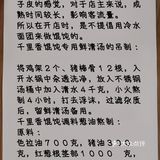 子度的感觉，对于大店来说，成
熟时间较长，影响客流量。
所以在开店时，是不提倡用冷水
面团来做馄饨的。
千里香馄饨专用鲜清汤的吊制：
将鸡架2个、猪棒骨12根、入
开水锅中汆透洗净，放入不锈钢
汤桶中加入清水4千克，小火熬
制4小时，打去浮沫，过滤杂质
后，留鲜清汤备用。
千里香馄饨调料酱油熬制：
原料：
色拉油700克，猪油3
克，红葱根茎部1000克，